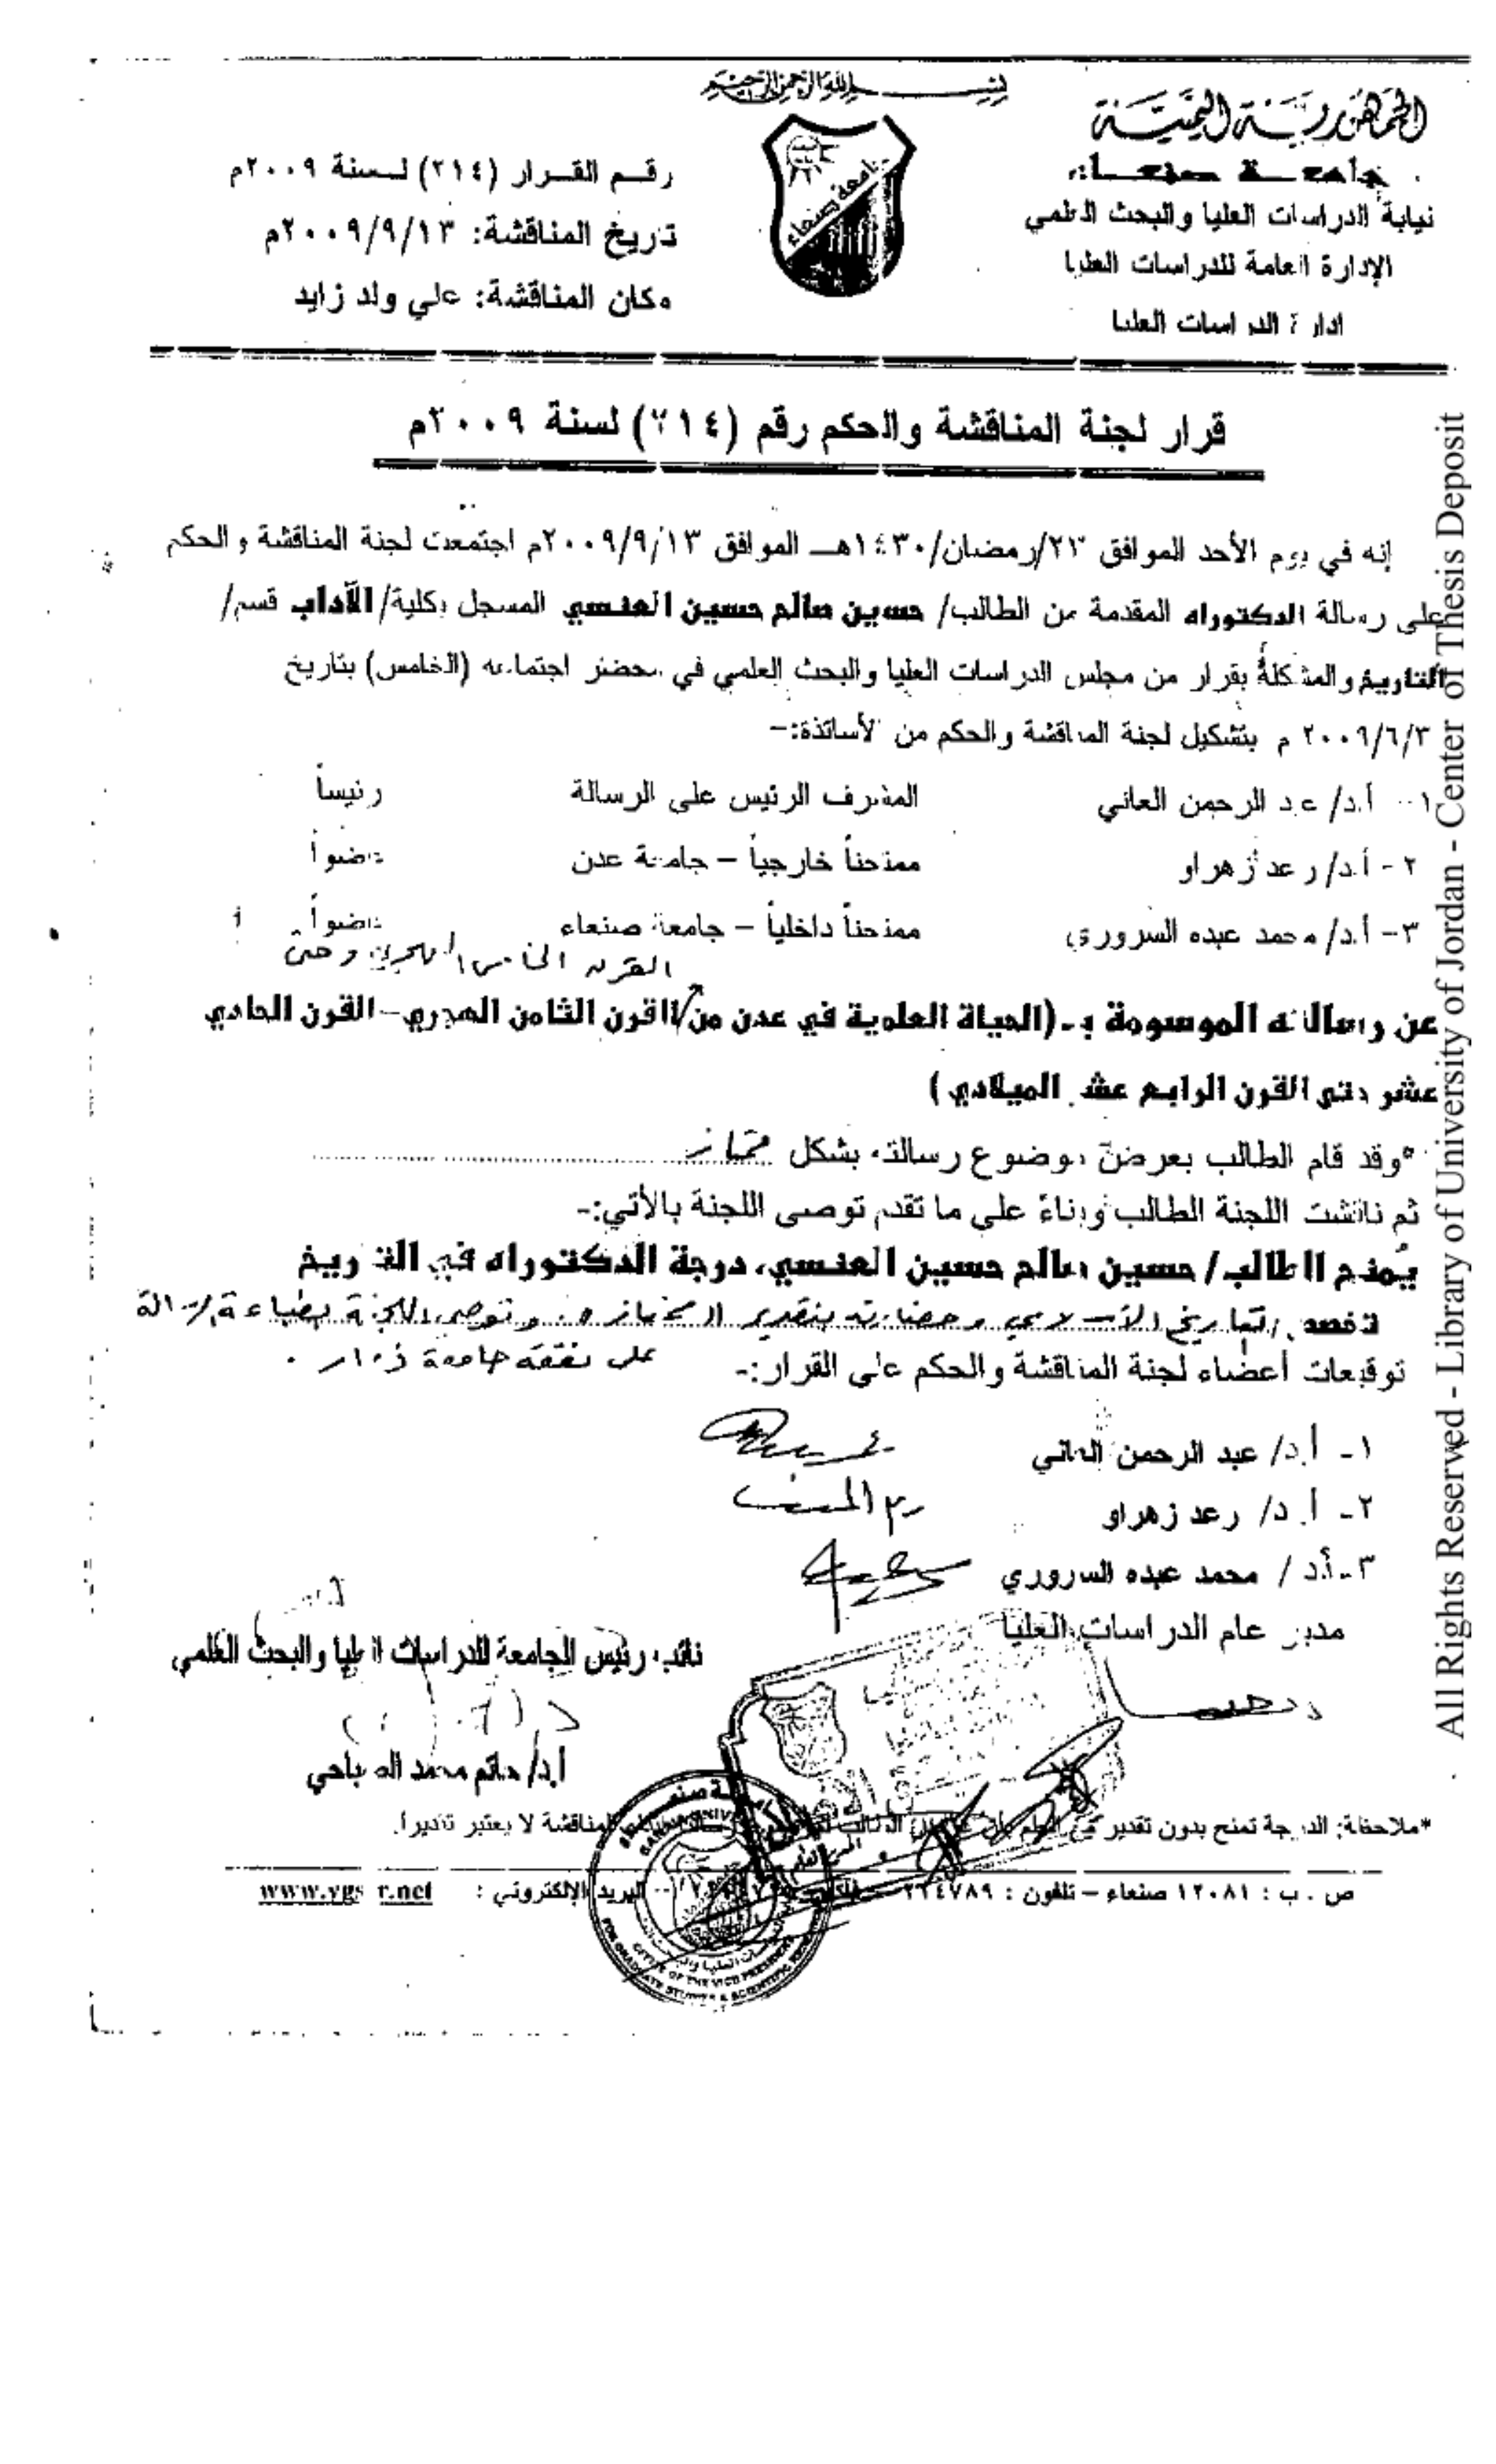 بسم الله الرحمن الرحيم
الجمهورية اليمنية
جامعة صنعاء
نيابة الدراسات العليا والبحث العلمي
الإدارة العامة للدراسات العليا
ادارة الدراسات العليا
رقم القرار (٢١٤) لسنة ٢٠٠٩م
تاريخ المناقشة: ٢٠٠٩/٩/١٣م
مكان المناقشة: علي ولد زايد
جامعة صنعاء
قرار لجنة المناقشة والحكم رقم (٢١٤) لسنة ٢٠٠٩م
إنه في يوم الأحد الموافق ٢٣/رمضان/١٤٣٠هـ الموافق ٢٠٠٩/٩/١٣م اجتمعت لجنة المناقشة والحكم
على رسالة الدكتوراه المقدمة من الطالب/ حسين صالح حسين العنسي المسجل بكلية/ الآداب قسم/
التاريخ والمشكلة بقرار من مجلس الدراسات العليا والبحث العلمي في محضر اجتماعه (الخامس) بتاريخ
٢٠٠٩/٦/٣ م بتشكيل لجنة المناقشة والحكم من الأساتذة:-
١- أ.د/ عبد الرحمن العاني المشرف الرئيس على الرسالة رئيساً
٢- أ.د/ رعد زهراو ممتحناً خارجياً – جامعة عدن عضواً
٣- أ.د/ محمد عبده السروري ممتحناً داخلياً – جامعة صنعاء عضواً
القرن الخامس الهجري وحتى
عن رسالته الموسومة بـ(الحياة العلمية في عدن من القرن الثامن الهجري-القرن الحادي
عشر حتى القرن الرابع عشر الميلادي)
وقد قام الطالب بعرض موضوع رسالته بشكل ممتاز
ثم ناقشت اللجنة الطالب وبناءً على ما تقدم توصى اللجنة بالآتي:-
يُمنح الطالب/ حسين صالح حسين العنسي، درجة الدكتوراه في التاريخ
تخصص تاريخ الاسلامي وحضارته بتقدير ممتاز وتوصي اللجنة بطباعة الرسالة
على نفقة جامعة ذمار .
توقيعات أعضاء لجنة المناقشة والحكم على القرار:-
١- أ.د/ عبد الرحمن العاني
٢- أ.د/ رعد زهراو
٣-أ.د / محمد عبده السروري
مدير عام الدراسات العليا
نائب رئيس الجامعة للدراسات العليا والبحث العلمي
أ.د/ حاتم محمد الصباحي
*ملاحظة: الدرجة تمنح بدون تقدير المناقشة لا يعتبر تقديرا.
ص . ب : ١٢٠٨١ صنعاء – تلفون : ٢٢٤٧٨٩ البريد الإلكتروني :
OFFICE OF THE VICE PRESIDENT
FOR GRADUATE STUDIES & SCIENTIFIC
All Rights Reserved - Library of University of Jordan - Center of Thesis Deposit